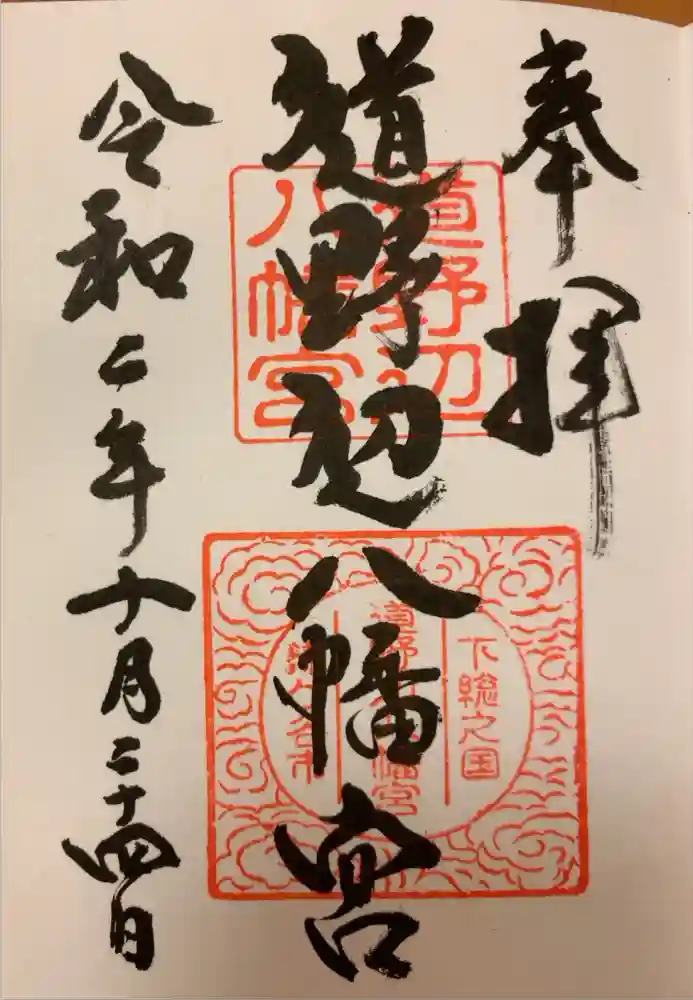 奉拝
道野辺八幡宮
令和二年十月二十四日
道野辺
八幡宮
下総之国
道野辺八幡宮
鎌ケ谷市